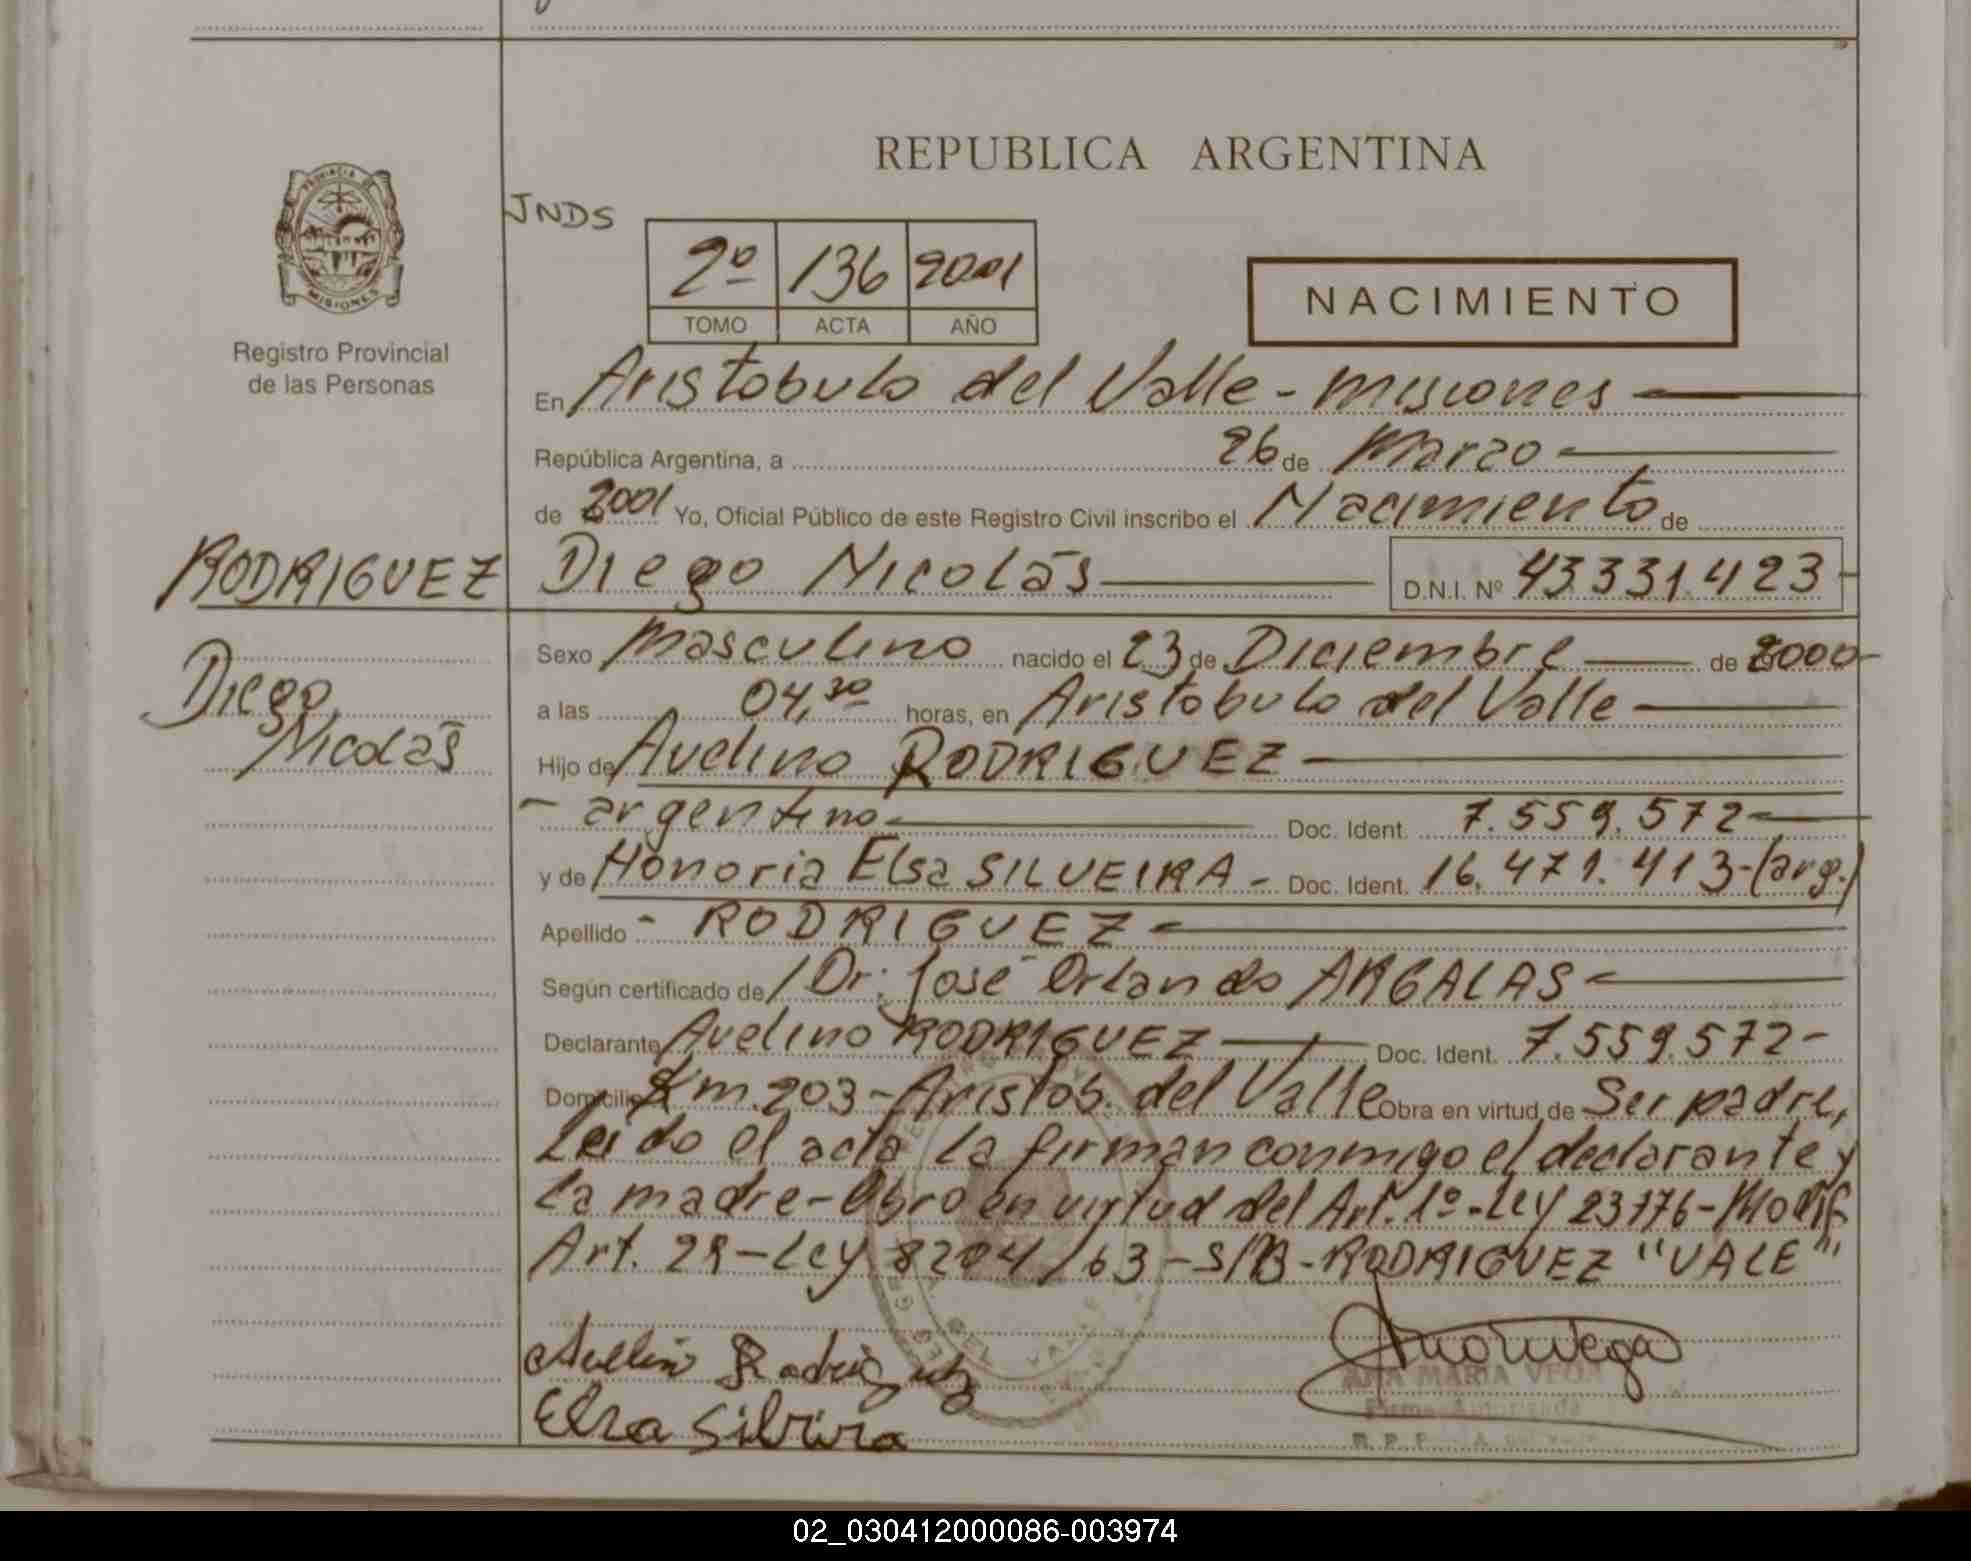 REPUBLICA ARGENTINA
PROVINCIA DE
MISIONES
Registro Provincial
de las Personas
JNDS
2º 136 2001
TOMO ACTA AÑO
NACIMIENTO
En Aristobulo del Valle - Misiones
República Argentina, a 26 de Marzo
de 2001 Yo, Oficial Público de este Registro Civil inscribo el Nacimiento de
RODRIGUEZ Diego Nicolás D.N.I. Nº 43331.423
Diego
Nicolás
Sexo Masculino nacido el 23 de Diciembre de 2000
a las 04,30 horas, en Aristobulo del Valle
Hijo de Avelino RODRIGUEZ
- argentino Doc. Ident. 7.559.572
y de Honoria Elsa SILVEIRA - Doc. Ident. 16.471.413 - (arg.)
Apellido - RODRIGUEZ
Según certificado de Dr. José Orlando ARGALAS
Declarante Avelino RODRIGUEZ Doc. Ident. 7.559.572 -
Domicilio Km. 203 - Aristob. del Valle Obra en virtud de Ser padre,
Leido el acta la firman conmigo el declarante y
la madre - Obro en virtud del Art. 1º - Ley 23776 - Modif
Art. 29 - Ley 8204/63 - S/B - RODRIGUEZ "VALE"
Avelino Rodriguez
Elsa Silvira
ANA MARIA VEGA
Firma Autorizada
02_030412000086-003974